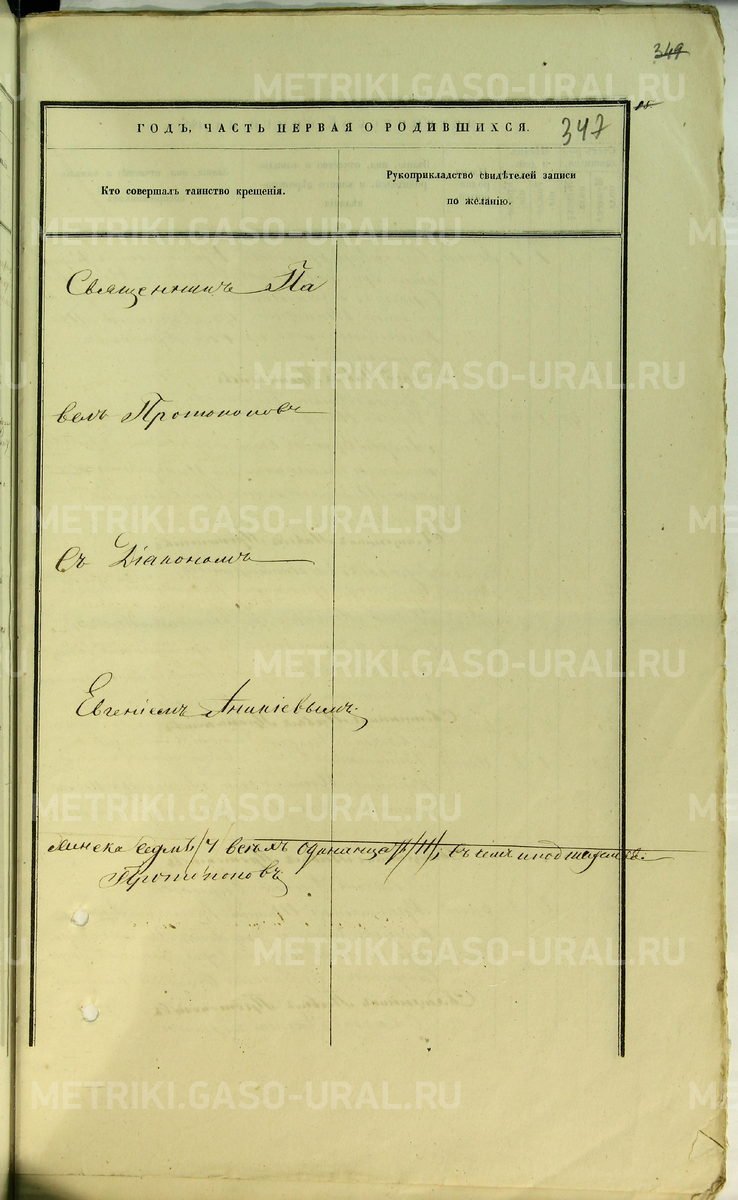 349
ГОДЪ, ЧАСТЬ ПЕРВАЯ О РОДИВШИХСЯ.
347
Кто совершалъ таинство крещенія.
Рукоприкладство свидѣтелей записи
по желанію.
Священникъ Па
велъ Протопоповъ
Съ Діакономъ
Евгеніемъ Аникіевымъ.
женска седмъ /7/ всѣхъ одинница /11/, въ
Протопоповъ
METRIKI.GASO-URAL.RU